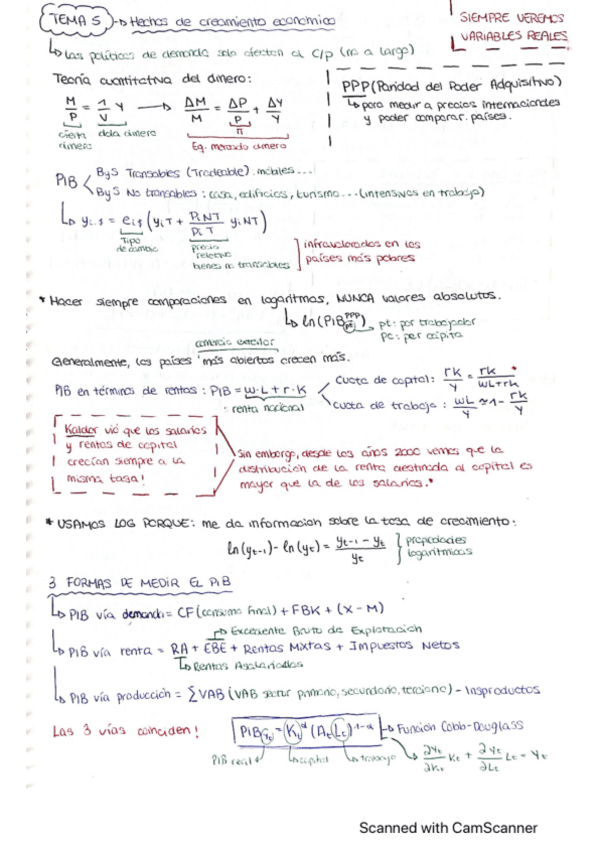 TEMA 5 → Hechos de crecimiento económico
SIEMPRE VEREMOS
VARIABLES REALES
↳ Las políticas de demanda solo afectan al C/p (no a largo)
Teoría cuantitativa del dinero:
M/P = 1/V Y → ΔM/M = ΔP/P + ΔY/Y
dda dinero
dinero
π
Eq. mercado dinero
PPP (Paridad del Poder Adquisitivo)
↳ para medir a precios internacionales
y poder comparar países.
PIB
ByS Transables (Tradeable): móviles...
ByS No transables: casa, edificios, turismo... (intensivos en trabajo)
↳ yi,$ = ei$ (yiT + PiNT/PiT yiNT)
Tipo
de cambio
precio
relativo
bienes no transables
infravalorados en los
países más pobres
* Hacer siempre comparaciones en logaritmos, NUNCA valores absolutos.
↳ ln(PIB PPP pt)
pt: por trabajador
pc: per cápita
comercio exterior
Generalmente, los países más abiertos crecen más.
PIB en términos de rentas: PIB = w·L + r·K
: renta nacional
Cuota de capital: rK/Y = rK/wL+rK *
cuota de trabajo: wL/Y ≈ 1- rK/Y
Kaldor vió que los salarios
y rentas de capital
crecían siempre a la
misma tasa!
Sin embargo, desde los años 2000 vemos que la
distribución de la renta destinada al capital es
mayor que la de los salarios.*
* USAMOS LOG PORQUE: me da informacion sobre la tasa de crecimiento:
ln(yt-1) - ln(yt) = yt-1 - yt / yt
propiedades
logarítmicas
3 FORMAS DE MEDIR EL PIB
↳ PIB vía demanda = CF (consumo final) + FBK + (X - M)
Excedente Bruto de Explotación
↳ PIB vía renta = RA + EBE + Rentas Mixtas + Impuestos Netos
↳ Rentas Asalariados
↳ PIB vía producción = ∑VAB (VAB sector primario, secundario, terciario) - Insproductos
Las 3 vías coinciden!
PIB = Kt^α (At Lt)^1-α → Función Cobb-Douglass
PIB real
capital
trabajo
∂Yt/∂Kt Kt + ∂Yt/∂Lt Lt = Yt
Scanned with CamScanner